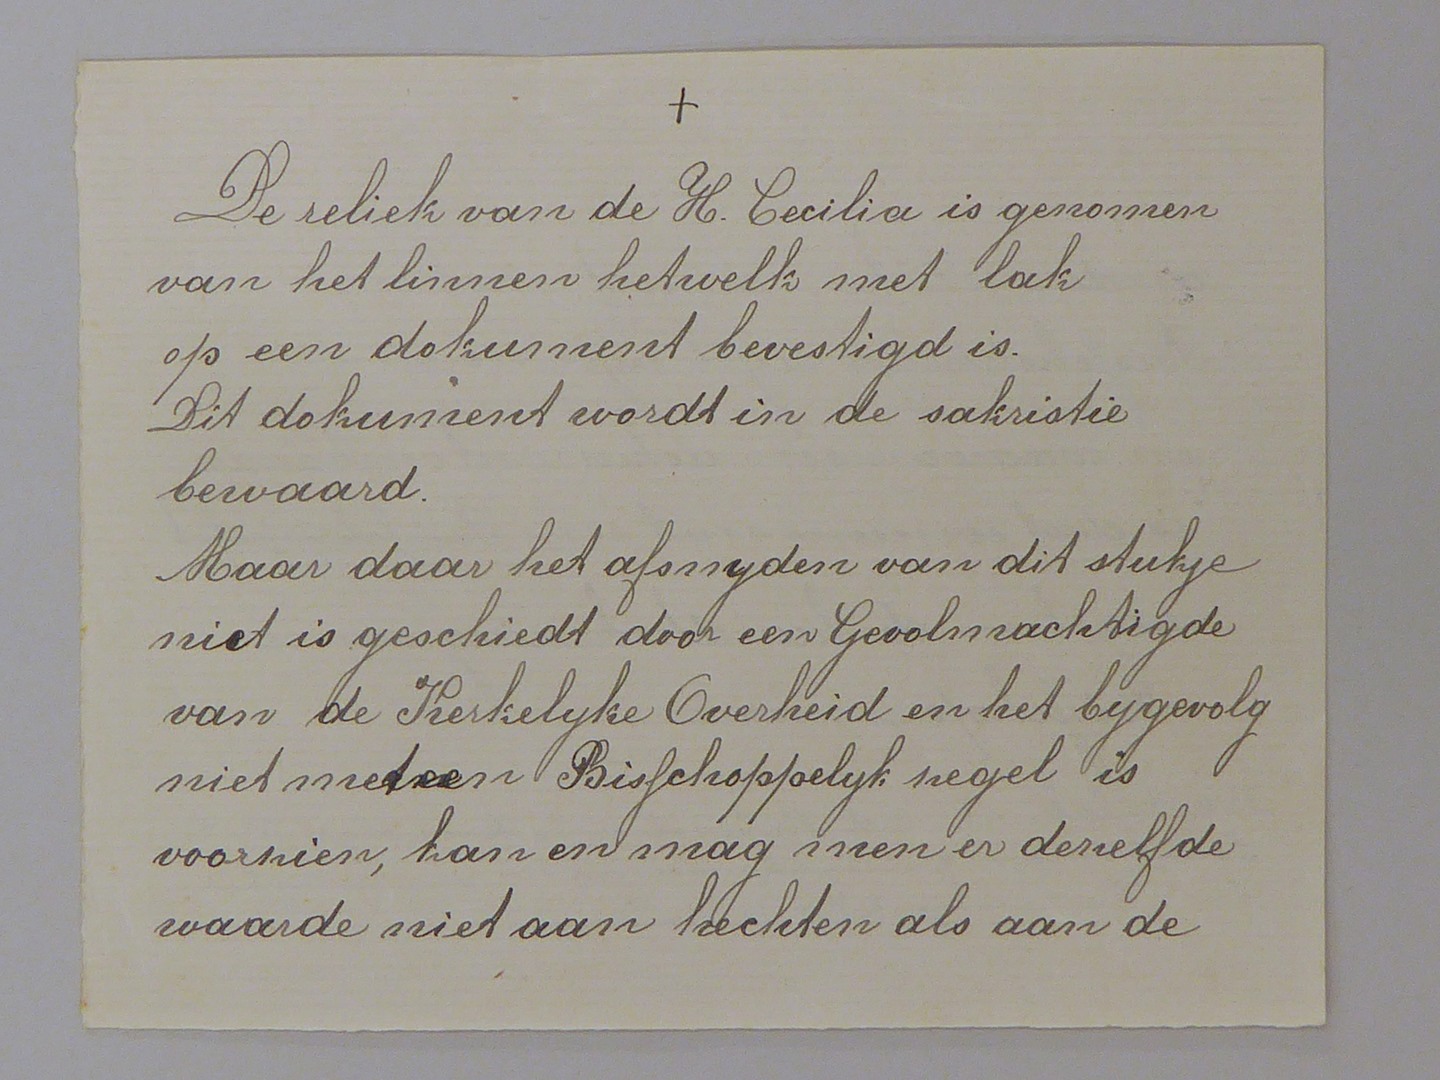 +
De reliek van de H. Cecilia is genomen
van het linnen hetwelk met lak
op een dokument bevestigd is.
Dit dokument wordt in de sakristie
bewaard.
Maar daar het afsnyden van dit stukje
niet is geschiedt door een Gevolmachtigde
van de Kerkelyke Overheid en het bygevolg
niet met een Bisschoppelyk zegel is
voorzien, kan en mag men er dezelfde
waarde niet aan hechten als aan de